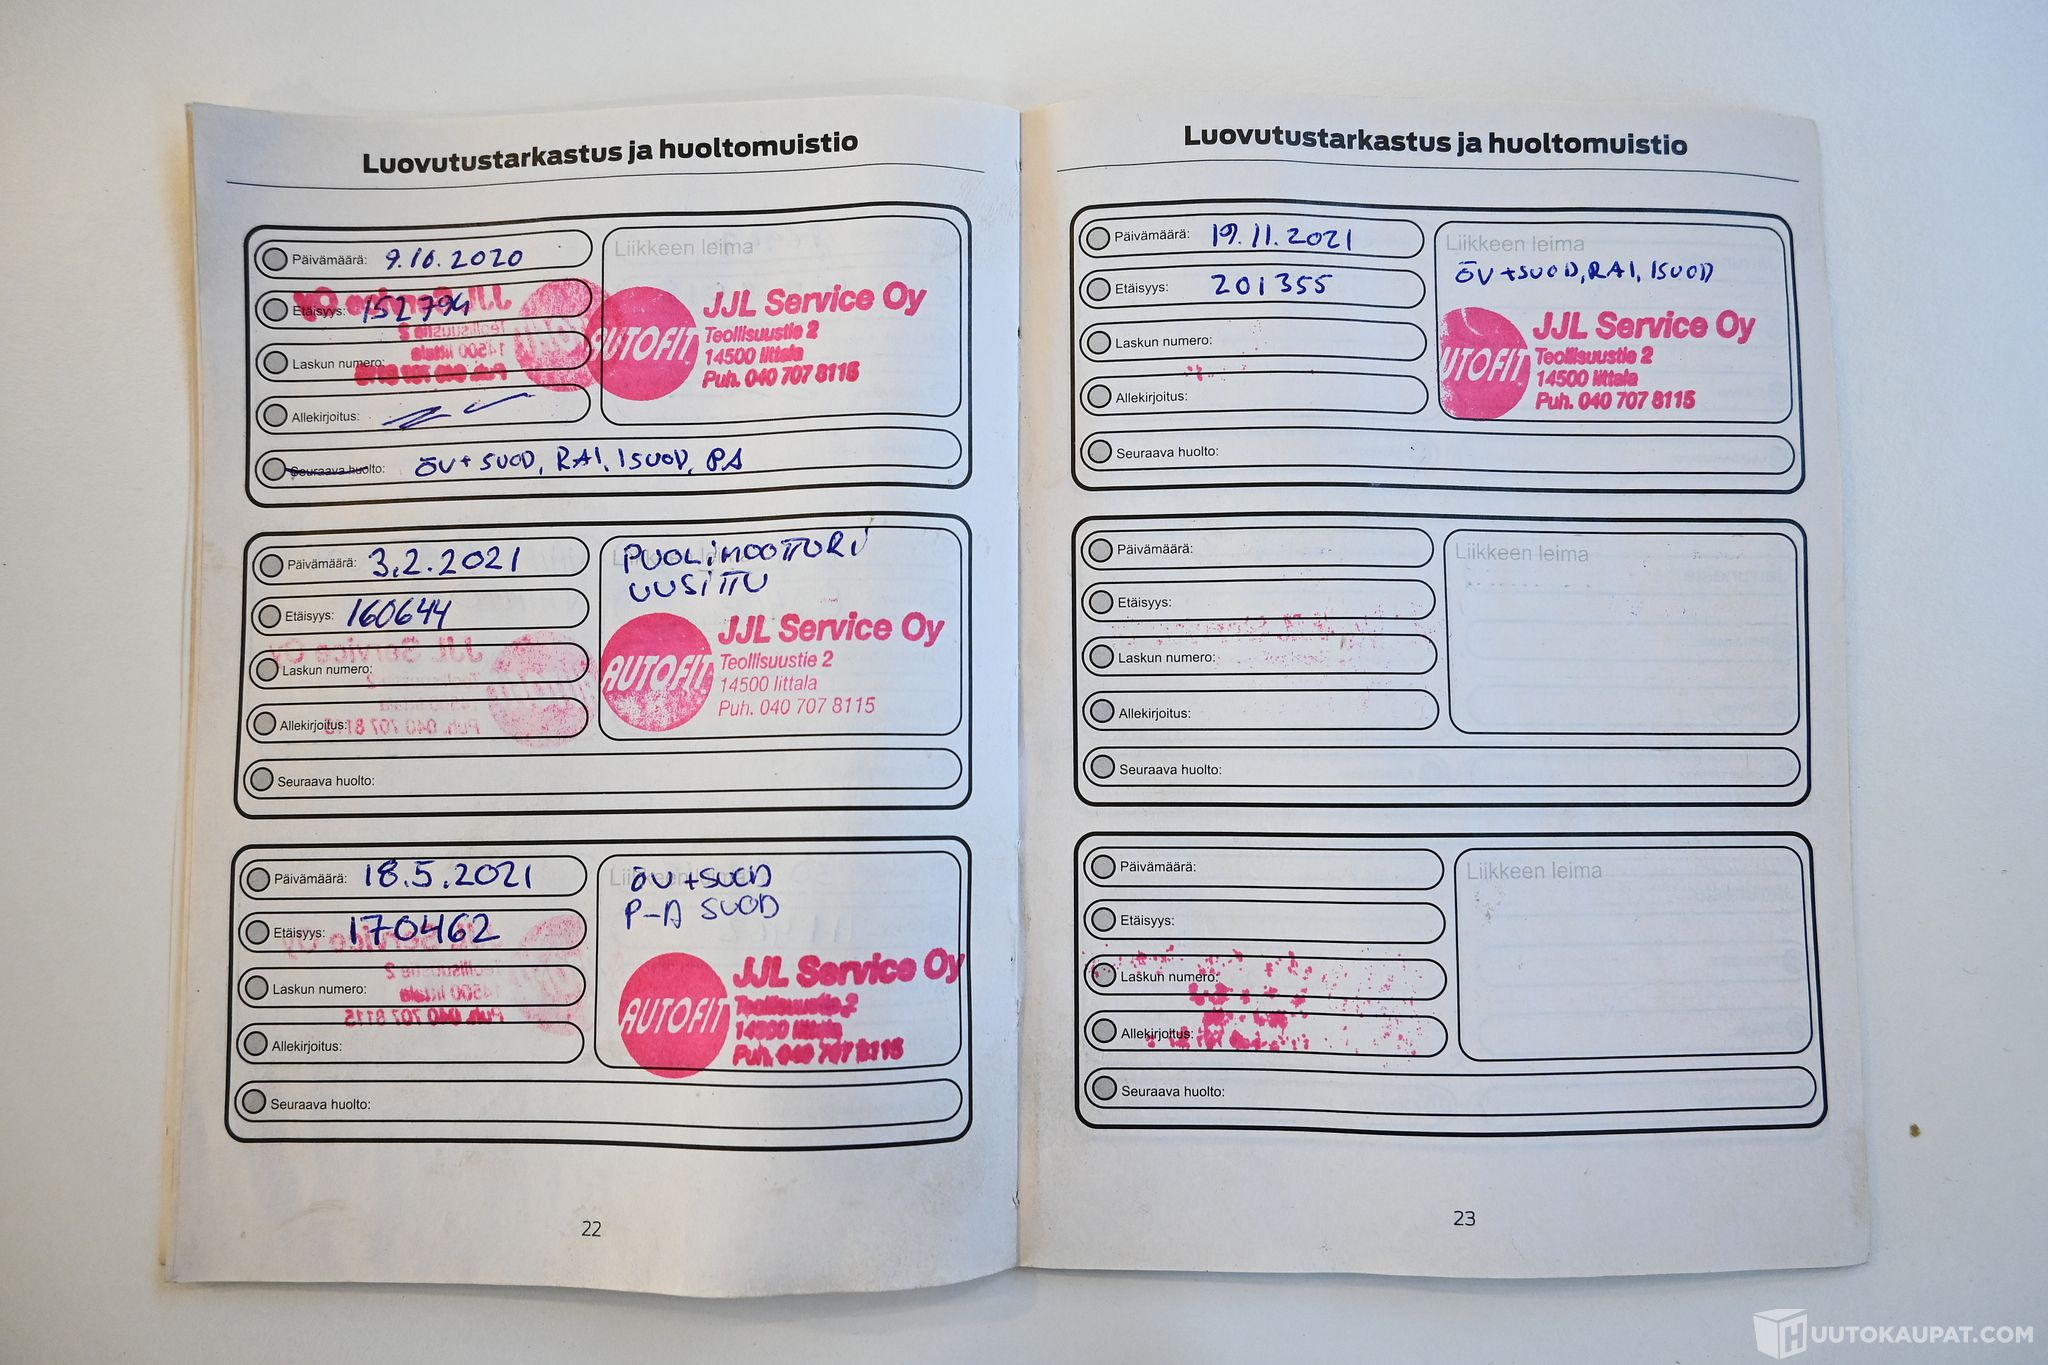 Luovutustarkastus ja huoltomuistio
Päivämäärä: 9.10.2020
Etäisyys: 152794
Laskun numero:
Allekirjoitus:
Liikkeen leima
AUTOFIT
JJL Service Oy
Teollisuustie 2
14500 Iittala
Puh. 040 707 8115
Seuraava huolto: ÖV + SUOD, RAI, ISUOD, PA
Päivämäärä: 3.2.2021
Etäisyys: 160644
Laskun numero:
Allekirjoitus:
PUOLIMOOTTORI
UUSITTU
AUTOFIT
JJL Service Oy
Teollisuustie 2
14500 Iittala
Puh. 040 707 8115
Seuraava huolto:
Päivämäärä: 18.5.2021
Etäisyys: 170462
Laskun numero:
Allekirjoitus:
Liikkeen leima
ÖV + SUOD
P-A SUOD
AUTOFIT
JJL Service Oy
Teollisuustie 2
14500 Iittala
Puh. 040 707 8115
Seuraava huolto:
22
Luovutustarkastus ja huoltomuistio
Päivämäärä: 19.11.2021
Etäisyys: 201355
Laskun numero:
Allekirjoitus:
Liikkeen leima
ÖV + SUOD, RAI, ISUOD
UTOFIT
JJL Service Oy
Teollisuustie 2
14500 Iittala
Puh. 040 707 8115
Seuraava huolto:
Päivämäärä:
Etäisyys:
Laskun numero:
Allekirjoitus:
Liikkeen leima
Seuraava huolto:
Päivämäärä:
Etäisyys:
Laskun numero:
Allekirjoitus:
Liikkeen leima
Seuraava huolto:
23
HUUTOKAUPAT.COM